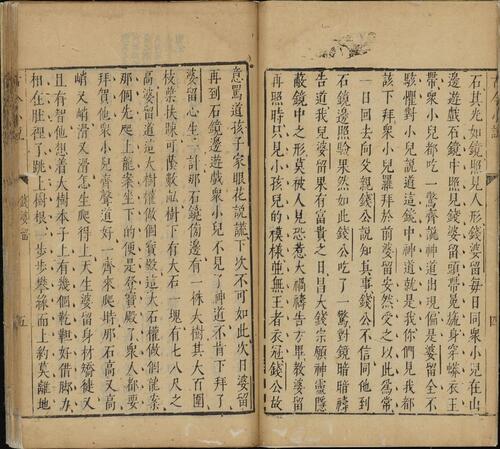 石其光如鏡照見人形錢婆留每日同衆小兒在山
邊遊戲石鏡中照見錢婆留頭帶冕旒身穿蟒衣玉
帶衆小兒都吃一驚齊說神道出現偏是婆留全不
駭懼對小兒說道這鏡中神道就是我你們見我都
該下拜衆小兒羅拜於前婆留安然受之以此爲常
一日回去向父親錢公說知其事錢公不信同他到
石鏡邊照驗果然如此錢公吃了一驚對鏡暗暗禱
告道我兒婆留果有富貴之日昌大錢宗願神靈隱
蔽鏡中之形莫被人見恐惹大禍禱告方畢教婆留
再照時只見小孩兒的模樣並無王者衣冠錢公故
意罵道孩子家眼花說謊下次不可如此次日婆留
再到石鏡邊遊戲衆小兒不見了神道不肯下拜了
婆留心生一計那石鏡傍邊有一株大樹其大百圍
枝葉扶疎可蔭數畝樹下有大石一塊有七八尺之
高婆留道這大樹權做個寶殿這大石權做個龍案
那個先爬上龍案坐下的便是登寶殿了衆人都要
拜賀他衆小兒齊聲道好一齊來爬時那石高又高
峭又峭滑又滑怎生爬得上天生婆留身材矯捷又
且有智他想着大樹本子上有幾個乾靼好借脚力
相在肚裡了跳上樹根一步步攀緣而上約莫離地
錢婆留
五